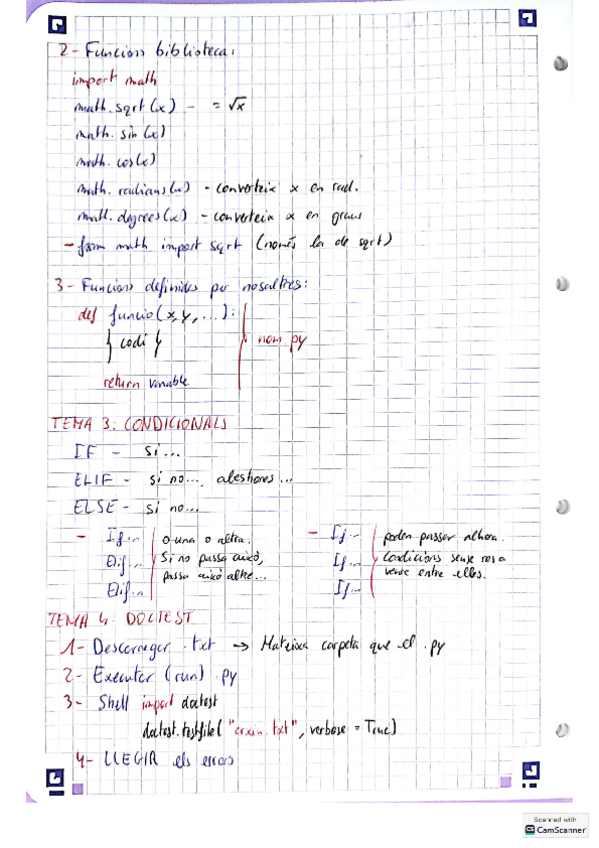 2- Funcions biblioteca:
import math
math.sqrt(x) - = √x
math.sin(x)
math.cos(x)
math.radians(x) - converteix x en rad.
math.degrees(x) - converteix x en graus
- from math import sqrt (només la de sqrt)
3- Funcions definides per nosaltres:
def funcio(x,y,...):
{ codi } nom py
return variable
TEMA 3: CONDICIONALS
IF - si...
ELIF - si no..., aleshores...
ELSE - si no...
- If... o una o altra.
Elif... Si no passa això,
Elif... passa això altre...
- If... poden passar alhora.
If... Condicions sense res a
If... veure entre elles.
TEMA 4: DOCTEST
1- Descarregar .txt → Mateixa carpeta que el .py
2- Executar (run) .py
3- Shell import doctest
doctest.testfile(".txt", verbose = True)
4- LLEGIR els errors
Scanned with
CS CamScanner